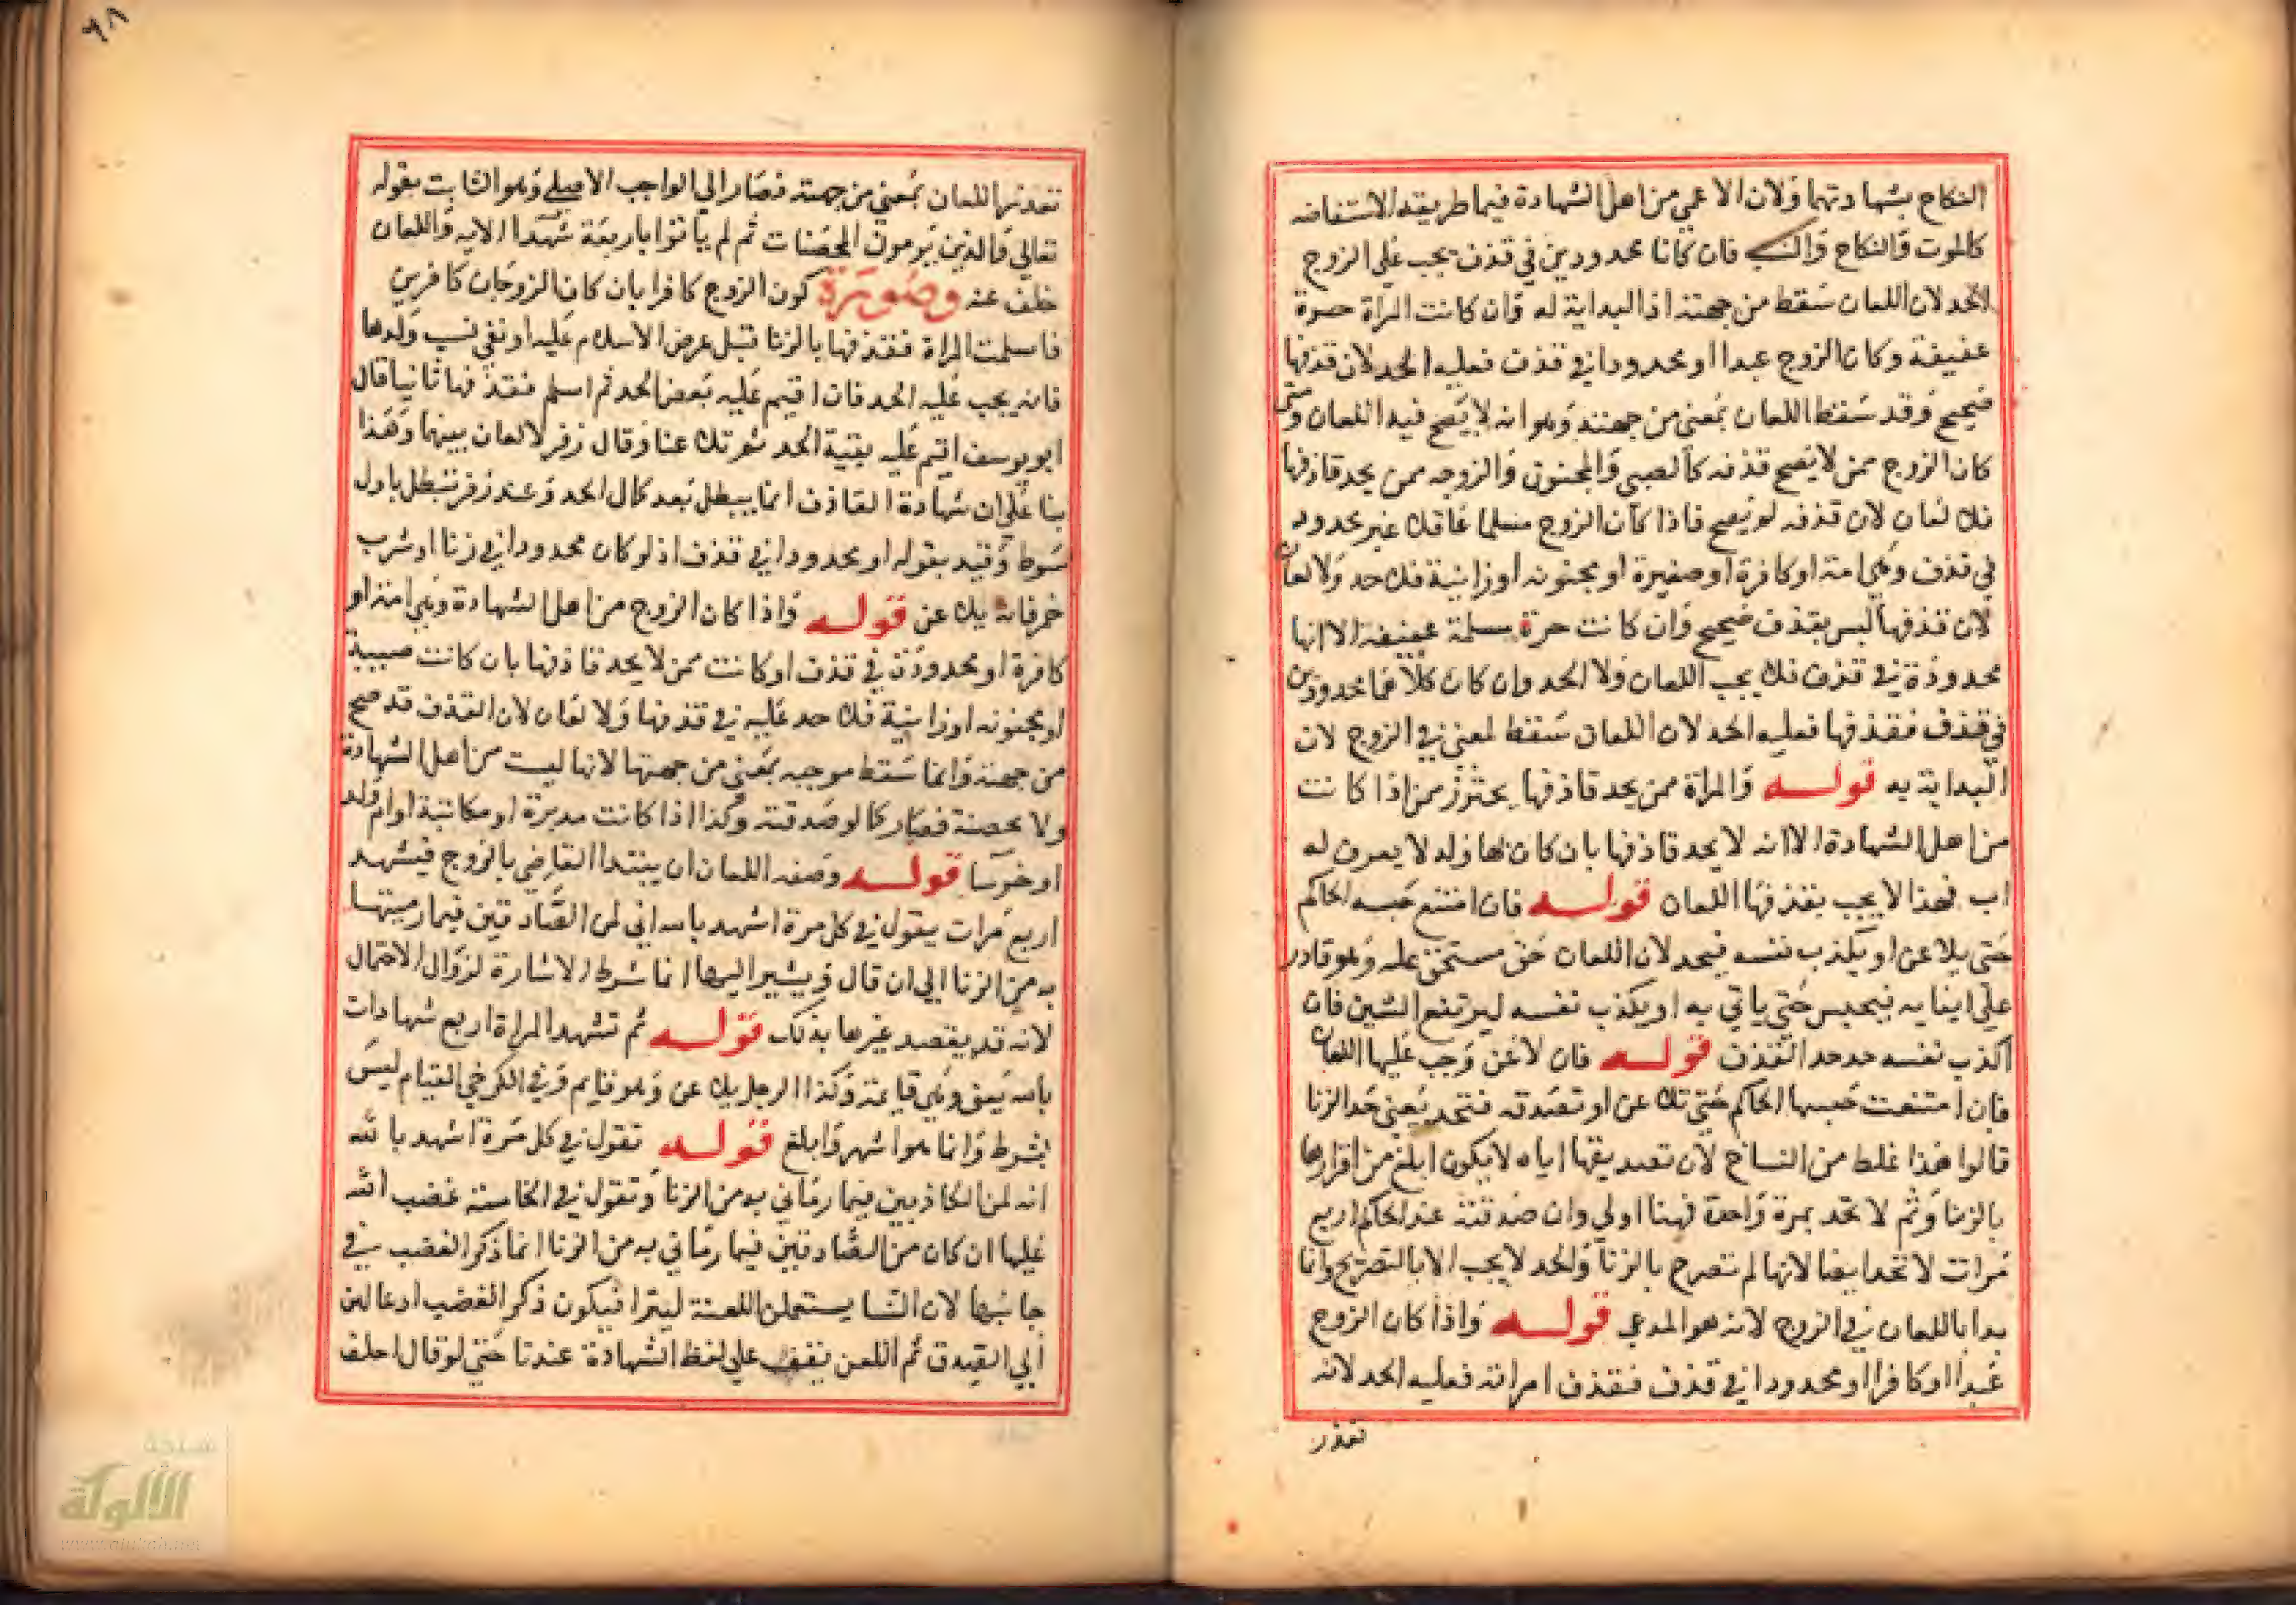 النكاح بشهادتهما ولان الاعمي من اهل الشهادة فيما طريقه الاستفاضه
كالموت والنكاح والنسب فان كانا محدودين في قذف يجب علي الزوج
الحد لان اللعان سقط من جهته اذ البداية له وان كانت المراة حرة
عفيفة وكان الزوج عبدا او محدودا في قذف فعليه الحد لان قذفها
صحيح وقد سقط اللعان بمعني من جهته وهو انه لا يصح فيه اللعان ومتي
كان الزوج ممن لا يصح قذفه كالصبي والمجنون والزوجه ممن يحد قاذفها
فلا لعان لان قذفه لم يصح فاذا كان الزوج مسلما عاقلا غير محدود
في قذف وهي امة او كافرة او صغيرة او مجنونه او زانية فلا حد ولا لعان
لان قذفها ليس بقذف صحيح وان كانت حرة مسلمة عفيفة الا انها
محدودة في قذف فلا يجب اللعان ولا الحد وان كان كلاهما محدودين
في قذف فقذفها فعليه الحد لان اللعان سقط لمعني في الزوج لان
البداية به قوله والمراة ممن يحد قاذفها يحترز ممن اذا كانت
من اهل الشهادة الا انه لا يحد قاذفها بان كان لها ولد لا يعرف له
اب فهذا لا يجب بقذفها اللعان قوله فان امتنع حبسه الحاكم
حتي يلاعن او يكذب نفسه فيحد لان اللعان حق مستحق عليه وهو قادر
علي ايفايه فيحبس حتي ياتي به او يكذب نفسه ليرتفع الشين فان
اكذب نفسه حد حد القذف قوله فان لاعن وجب عليها اللعان
فان امتنعت حبسها الحاكم حتي تلاعن او تصدقه فتحد يعني حد الزنا
قالوا هذا غلط من النساخ لان تصديقها اياه لا يكون ابلغ من اقرارها
بالزنا وثم لا تحد بمرة واحدة فهنا اولي وان صدقته عند الحاكم اربع
مرات لا تحد ايضا لانها لم تصرح بالزنا والحد لا يجب الا بالتصريح وانما
بدا باللعان في الزوج لانه هو المدعي قوله واذا كان الزوج
عبدا او كافرا او محدودا في قذف فقذف امراته فعليه الحد لانه
تعذر
٦٨
تعذر اللعان بمعني من جهته فصار الي الواجب الاصلي وهو الثابت بقوله
تعالي والذين يرمون المحصنات ثم لم ياتوا باربعة شهدا الايه واللعان
خلف عنه وصورة كون الزوج كافرا بان كان الزوجان كافرين
فاسلمت المراة فقذفها بالزنا قبل عرض الاسلام عليه او نفي نسب ولدها
فانه يجب عليه الحد فان اقيم عليه بعض الحد ثم اسلم فقذفها ثانيا قال
ابو يوسف اقيم عليه بقية الحد وقال زفر لا لعان بينهما وهذا
بنا علي ان شهادة القاذف انما يبطل بعد كمال الحد وعند زفر تبطل باول
سوط وقيد بقوله او محدودا في قذف اذ لو كان محدودا في زنا او شرب
خمر فانه يلاعن قوله واذا كان الزوج من اهل الشهادة وهي امة او
كافرة او محدودة في قذف او كانت ممن لا يحد قاذفها بان كانت صبية
او مجنونه او زانية فلا حد عليه في قذفها ولا لعان لان القذف قد صح
من جهته وانما سقط موجبه بمعني من جهتها لانها ليست من اهل الشهادة
ولا محصنة فصار كما لو صدقته وكذا اذا كانت مدبرة او مكاتبة او ام ولد
او خرسا قوله وصفه اللعان ان يبتدا القاضي بالزوج فيشهد
اربع مرات يقول في كل مرة اشهد بالله اني لمن الصادقين فيما رميتها
به من الزنا الي ان قال ويشير اليها انما شرط الاشارة لزوال الاحتمال
لانه قد يقصد غيرها بذلك قوله ثم تشهد المراة اربع شهادات
بالله يعني وهي قايمة وكذا الرجل يلاعن وهو قايم وفي الكرخي القيام ليس
بشرط وانما هو اشهر وابلغ قوله تقول في كل مرة اشهد بالله
انه لمن الكاذبين فيما رماني به من الزنا وتقول في الخامسة غضب الله
عليها ان كان من الصادقين فيما رماني به من الزنا انما ذكر الغضب في
جانبها لان النسا يستعملن اللعنة فيكون ذكر الغضب ادعا لهن
الي الصدق ثم اللعن يقف علي لفظ الشهادة عندنا حتي لو قال احلف
شبكة
الألوكة
www.alukah.net